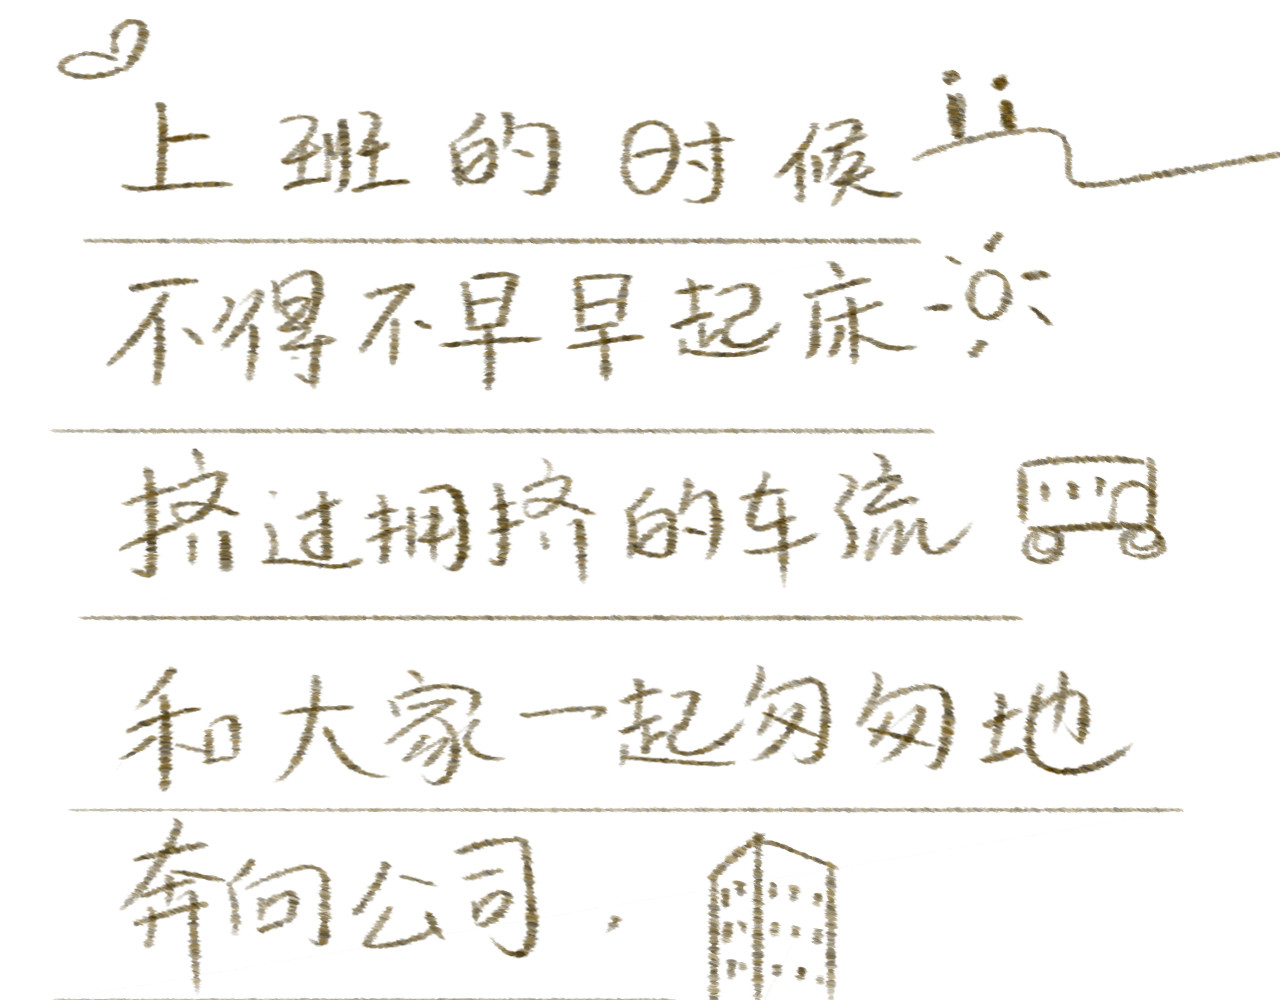 上班的时候
不得不早早起床
挤过拥挤的车流
和大家一起匆匆地
奔向公司.